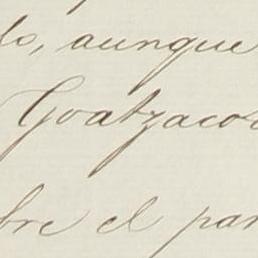 do, aunque
Goatzacoa
bre el par